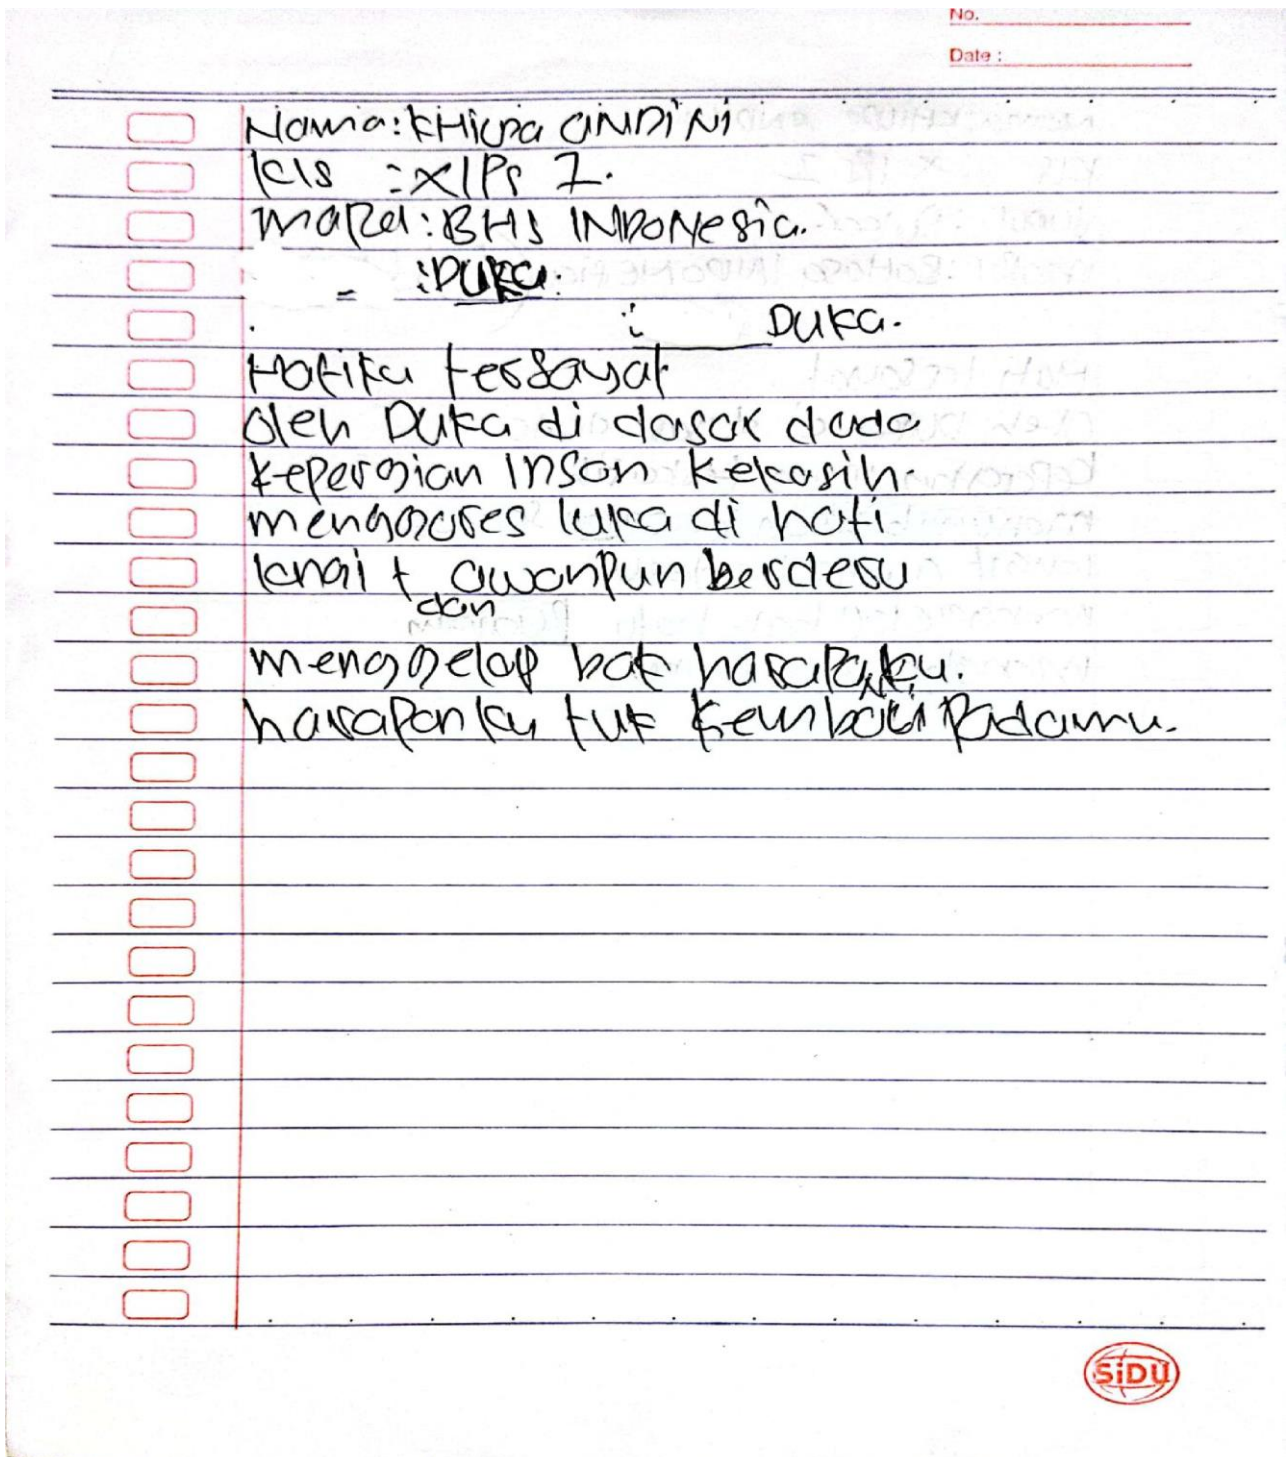 No.
Date :
Nama: KHIUPA ANDINI
Kls : X IPS 1.
mapel: BHS INDONesia.
- : DUKa.
: DUKa.
Hatiku tersayat
oleh Duka di dasar dada
kepergian Insan kekasih.
menggores luka di hati
awanpun berderu
dan
menggelap bak harapanku.
harapanku tuk kembali Padamu.
SiDU